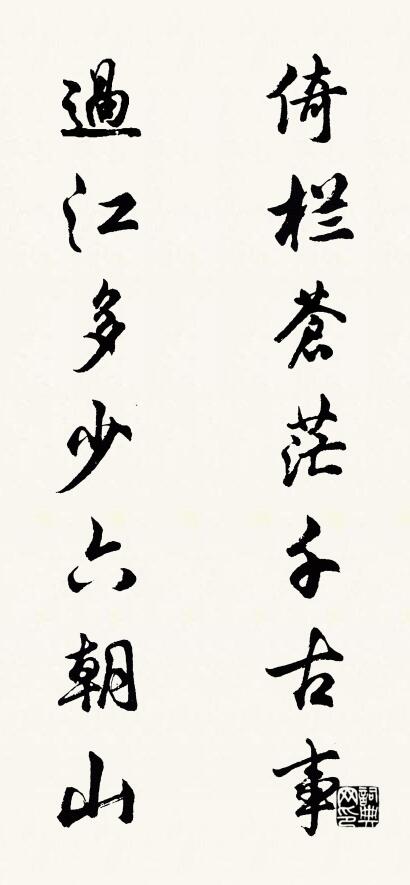 倚栏苍茫千古事
過江多少六朝山
詞典网印